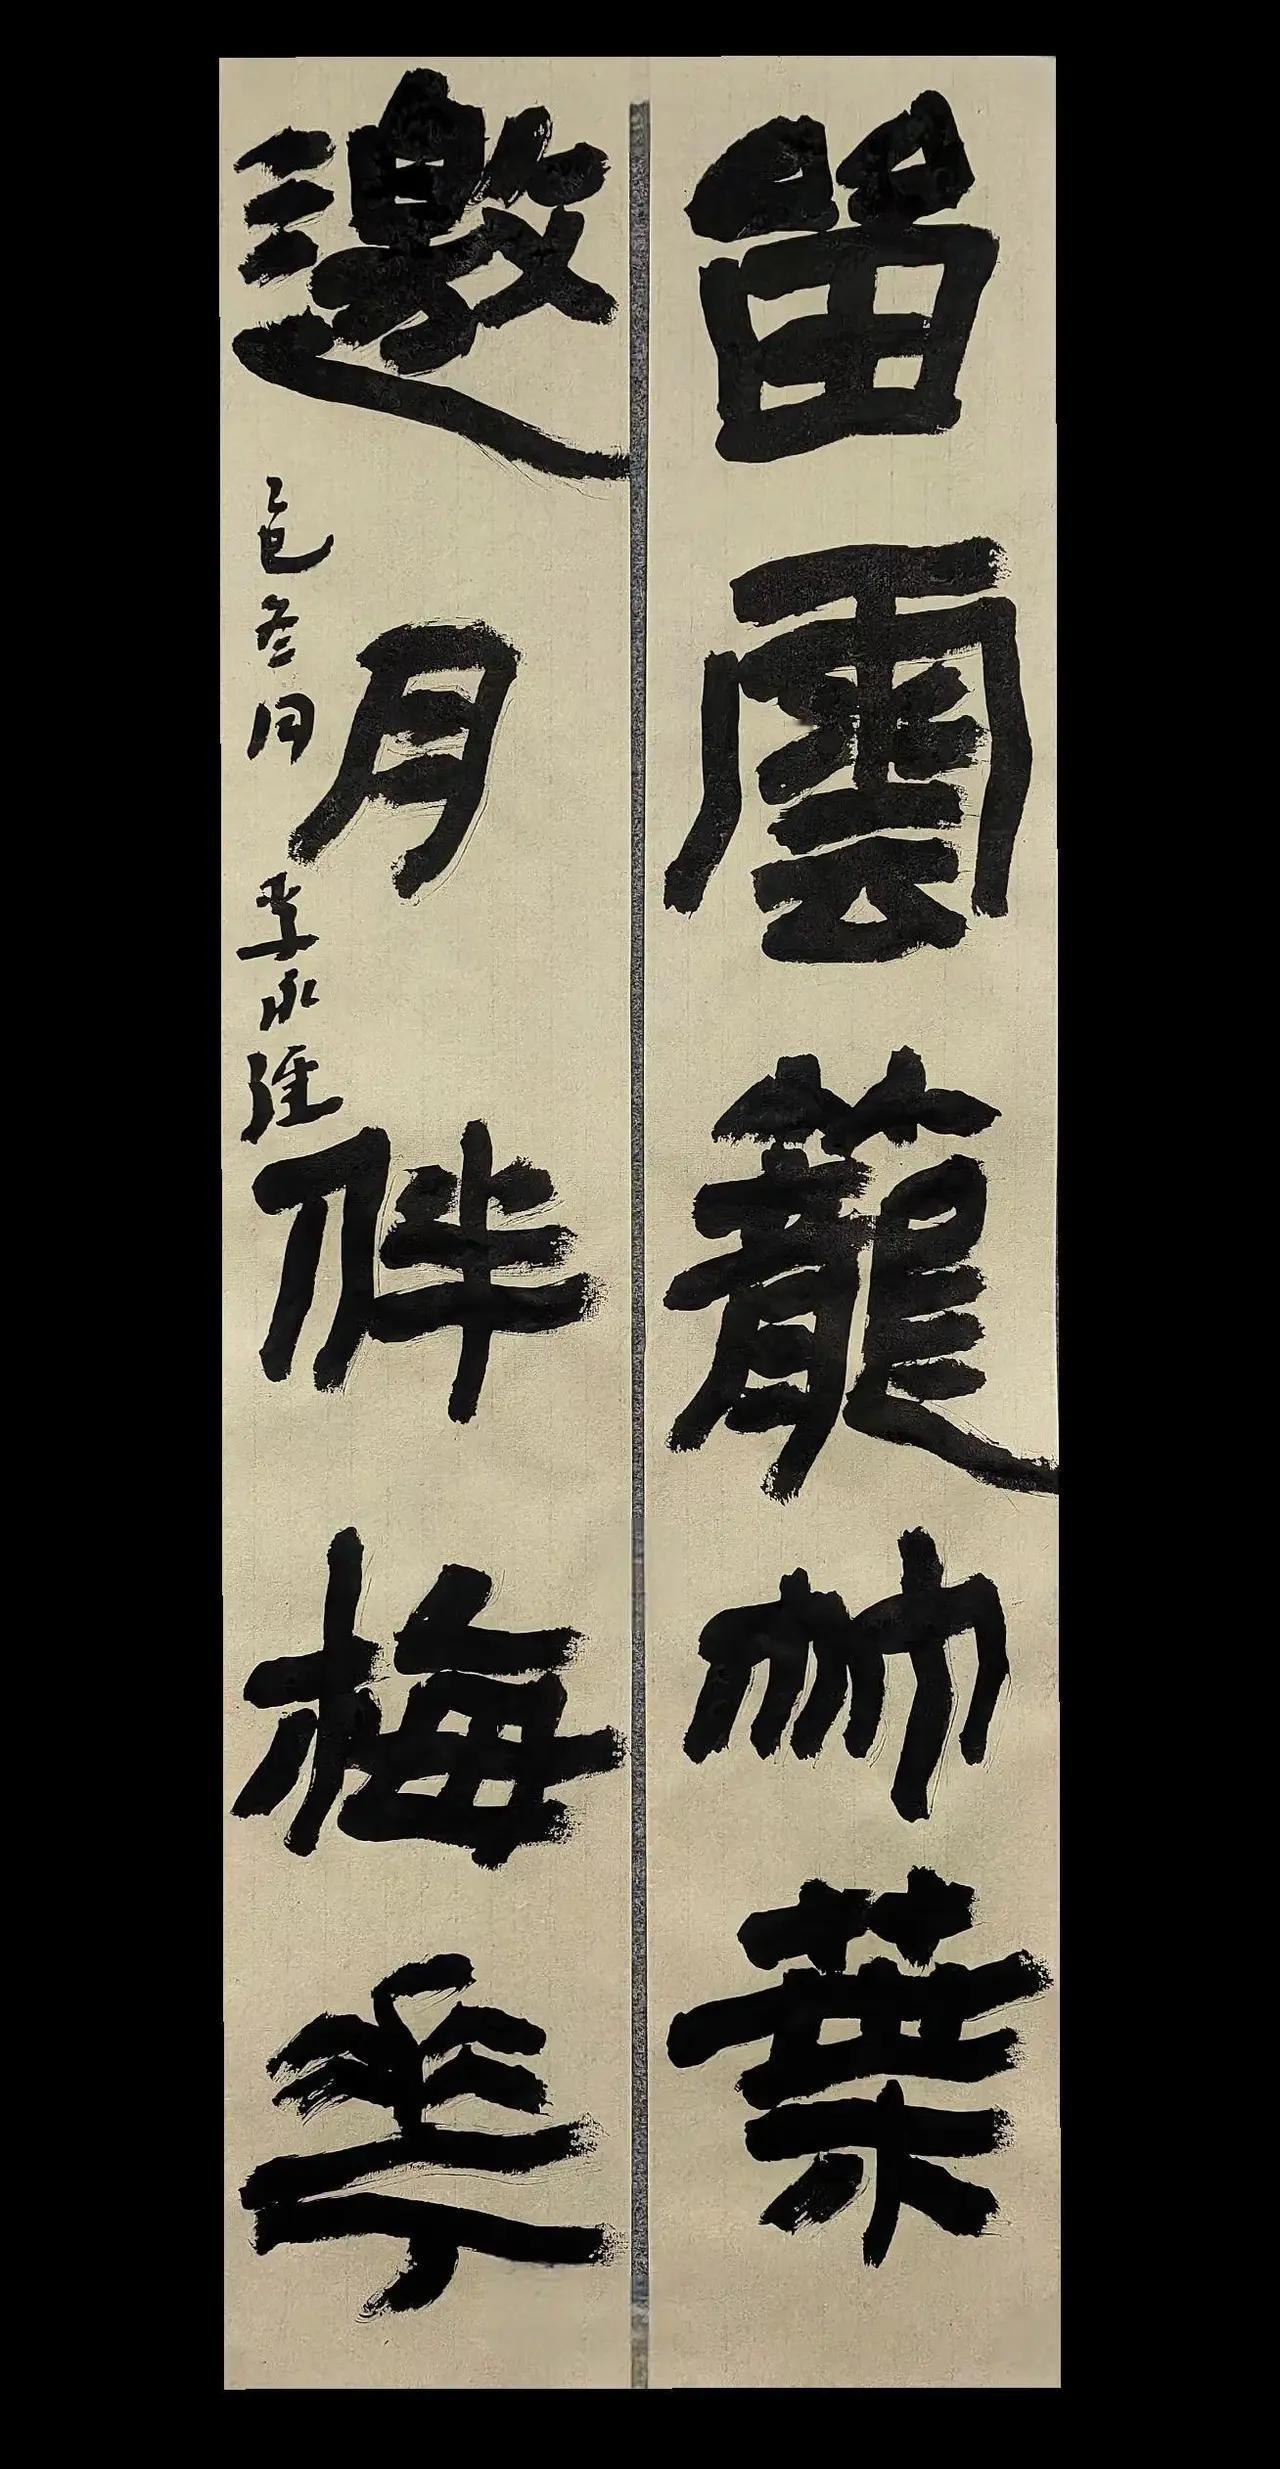 留雲籠竹葉
邀月伴梅花
乙巳冬月 李永